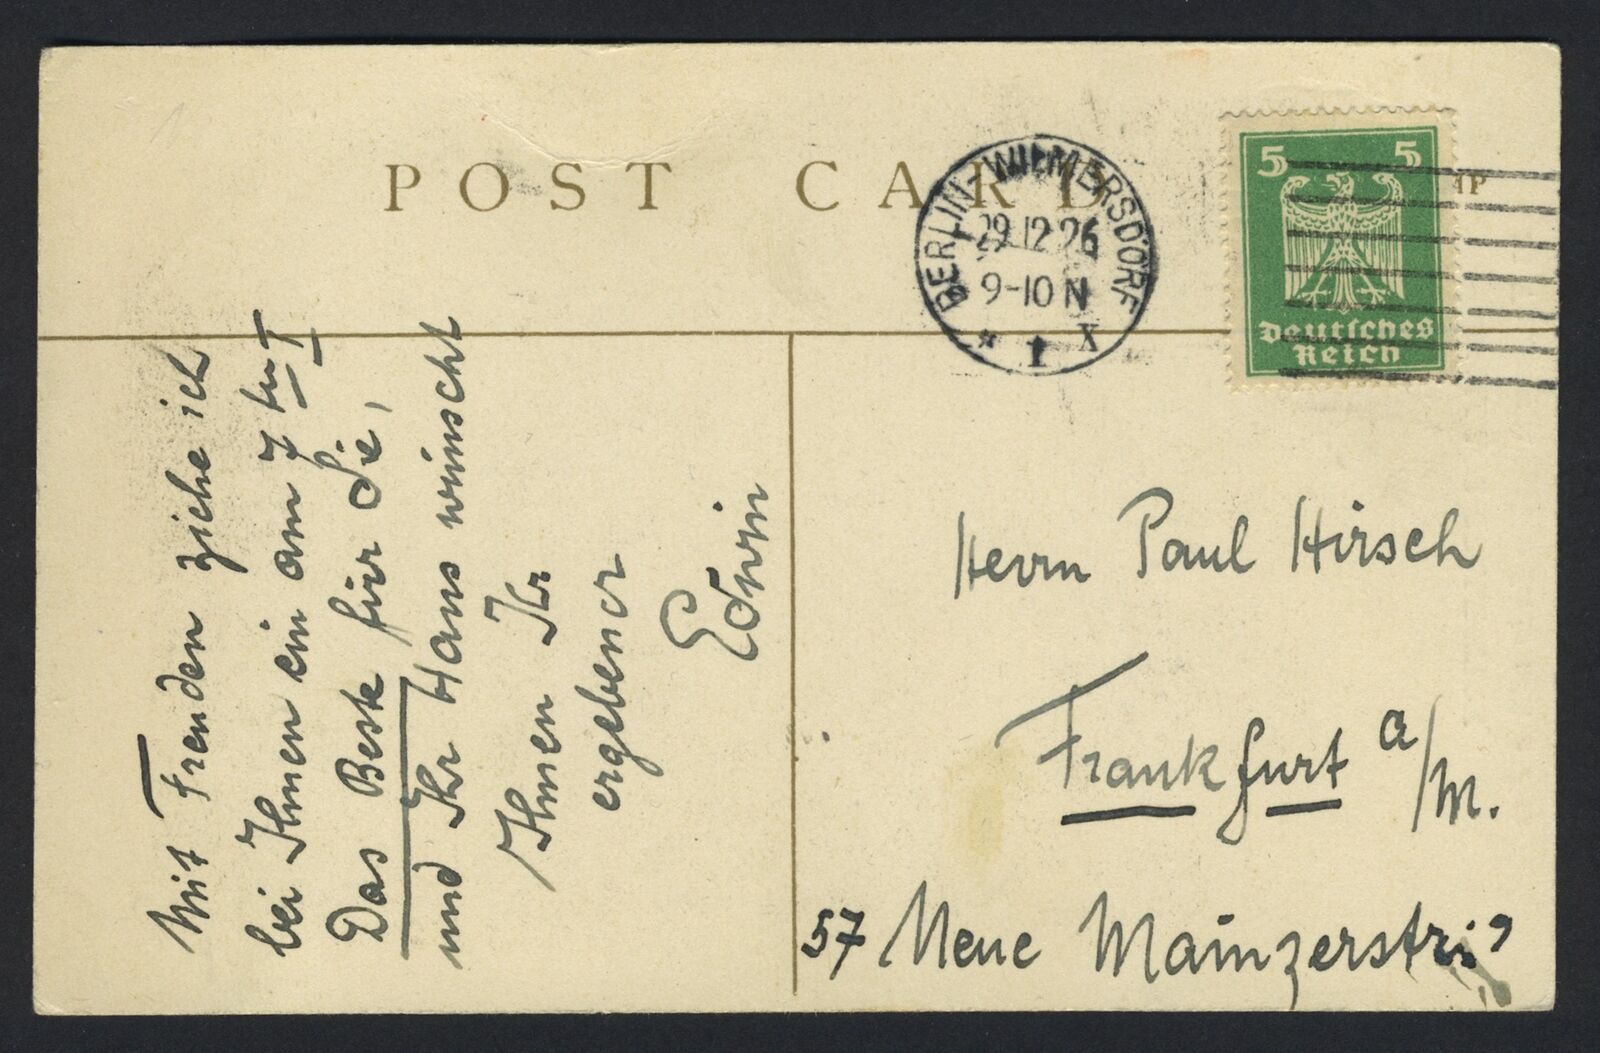 POST CARD
BERLIN-WILMERSDORF
29.12.26
9-10 N
* 1 X
5 5
Deutsches
Reich
Mit Freuden ziehe ich
bei Ihnen ein am 7
Das Beste für Sie,
und Ihr Haus wünscht
Ihnen Ihr
ergebener
Edwin
Herrn Paul Hirsch
Frankfurt a/M.
57 Neue Mainzerstr